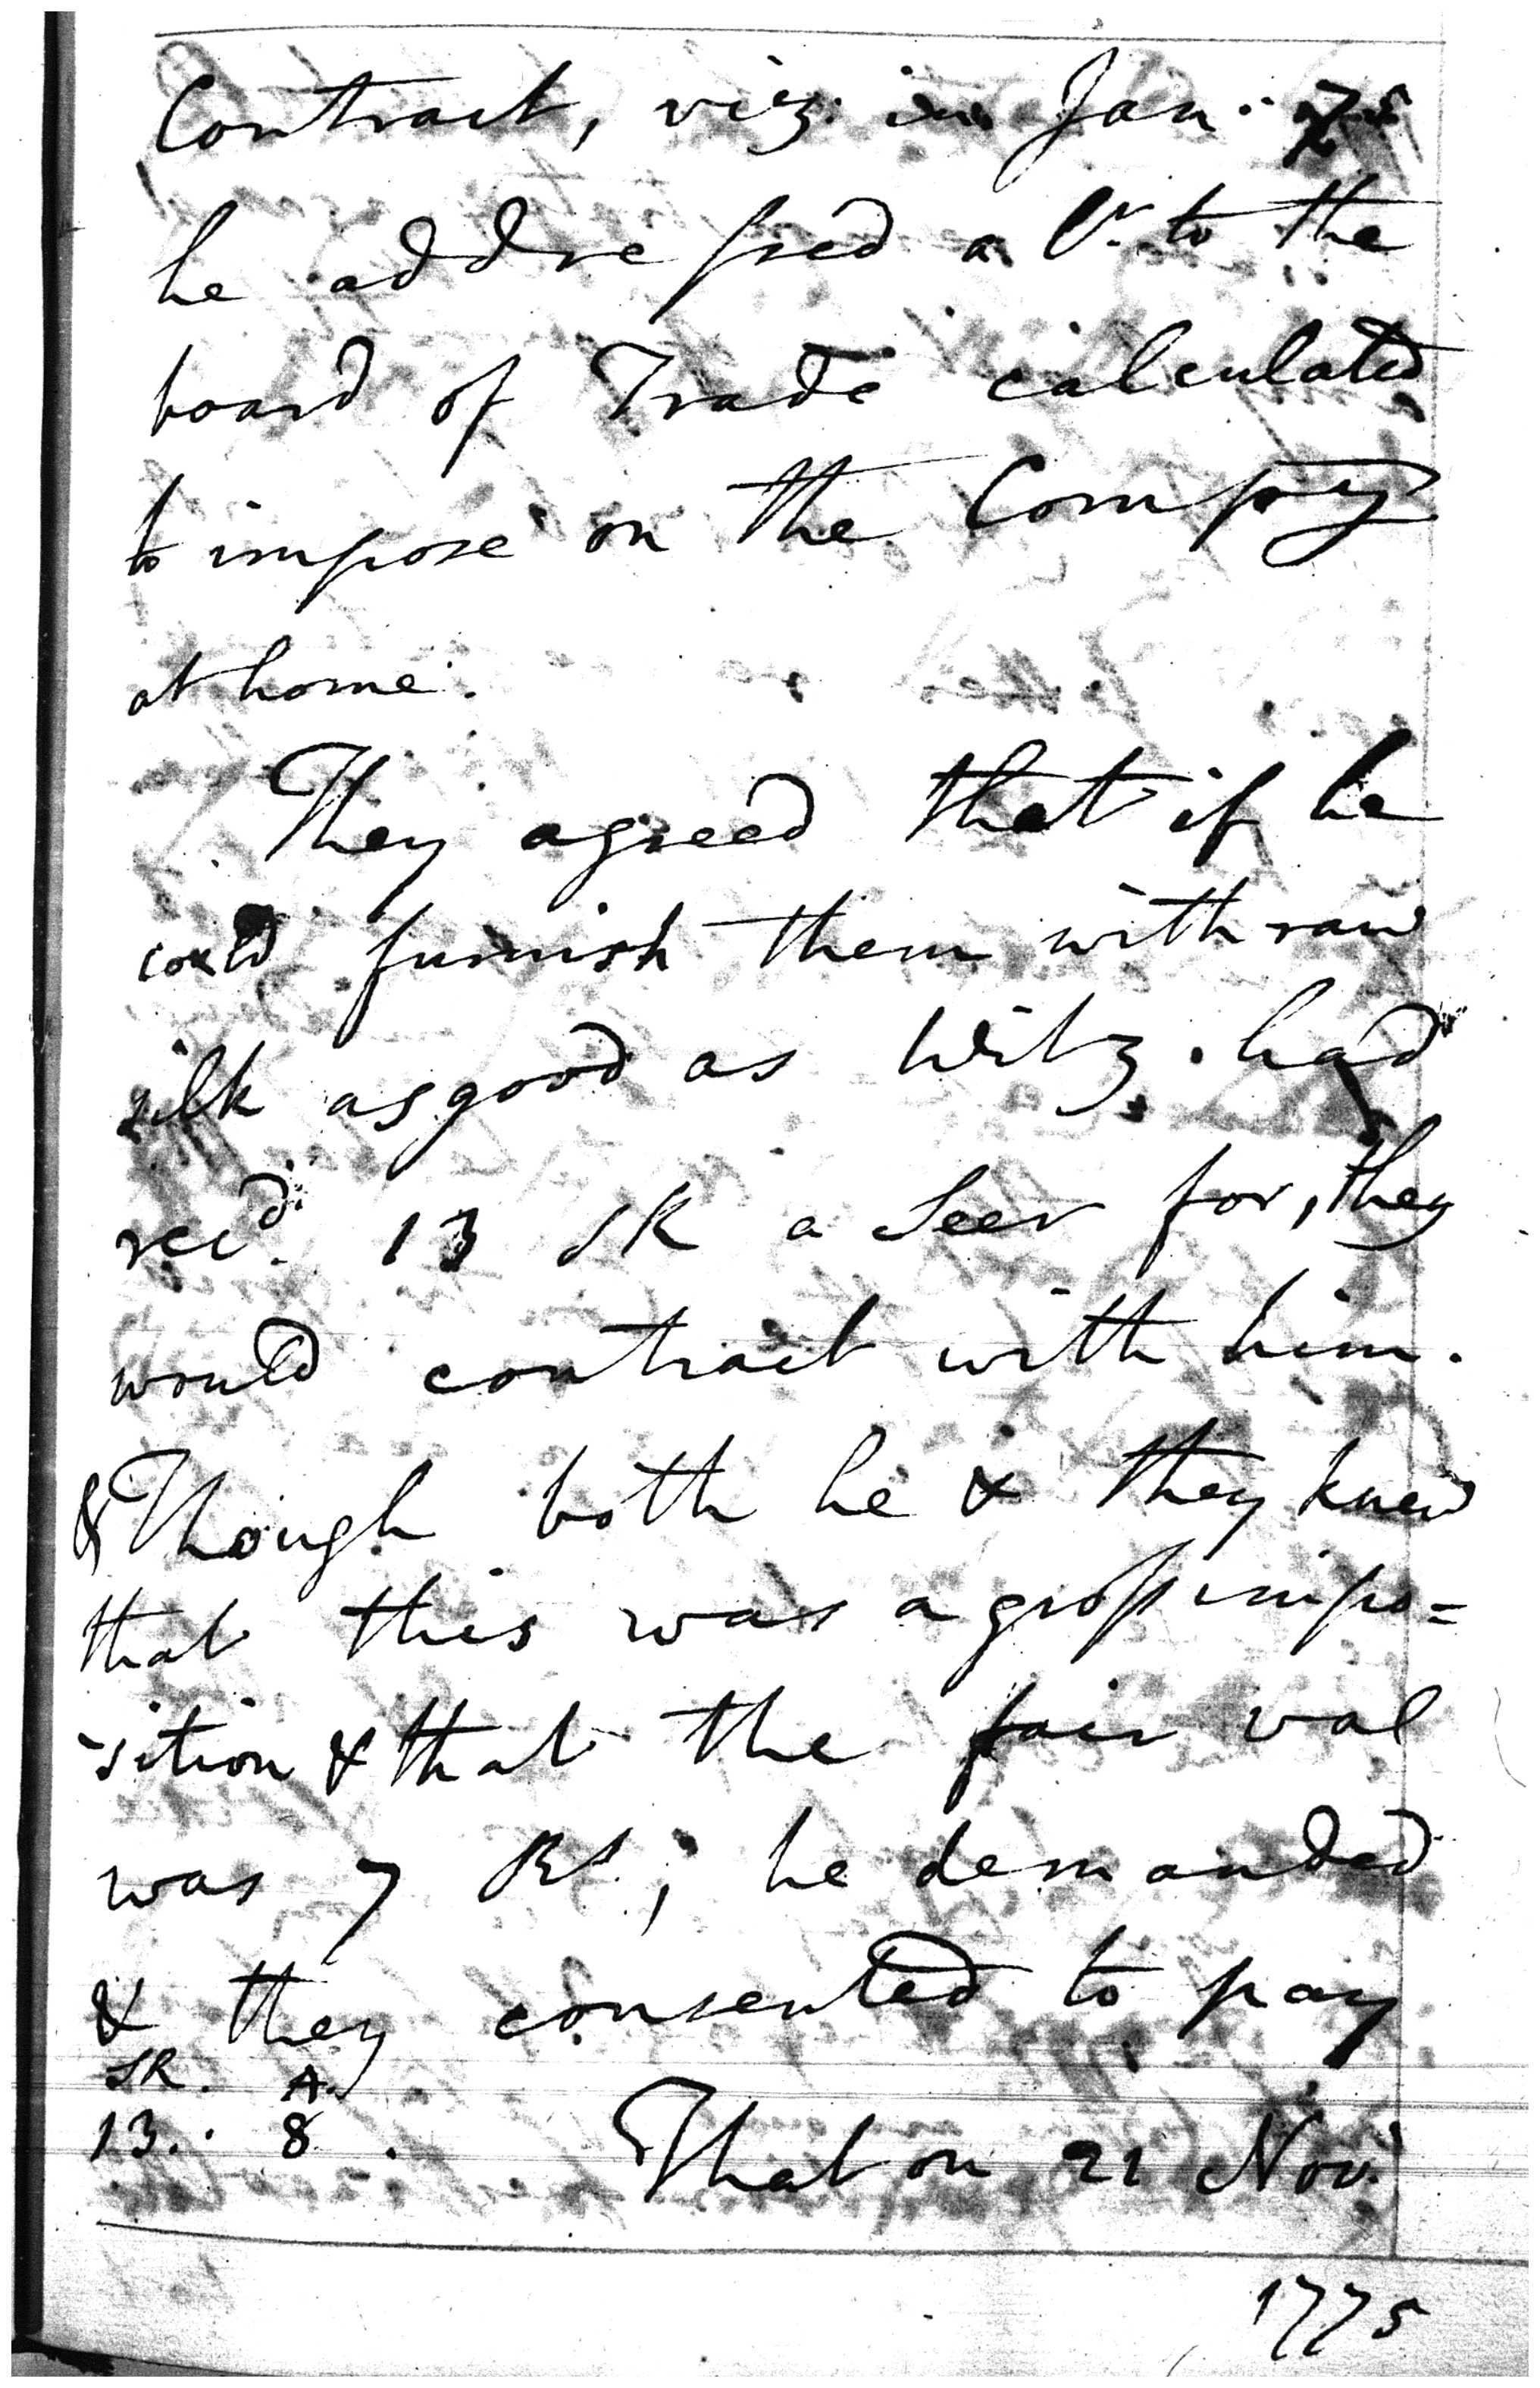 Contract, viz. in Jan. 75
he addressed a lr. to the
board of Trade calculated
to impose on the Compy
at home.
They agreed that if he
could furnish them with raw
silk as good as Witz. had
recd. 13 SR a Seer for, they
would contract with him.
& Though both he & they knew
that this was a gross impo=
-sition & that the fair val
was 7 Rs.; he demanded
& they consented to pay
SR. A.
13.. 8. That on 21 Nov.
1775